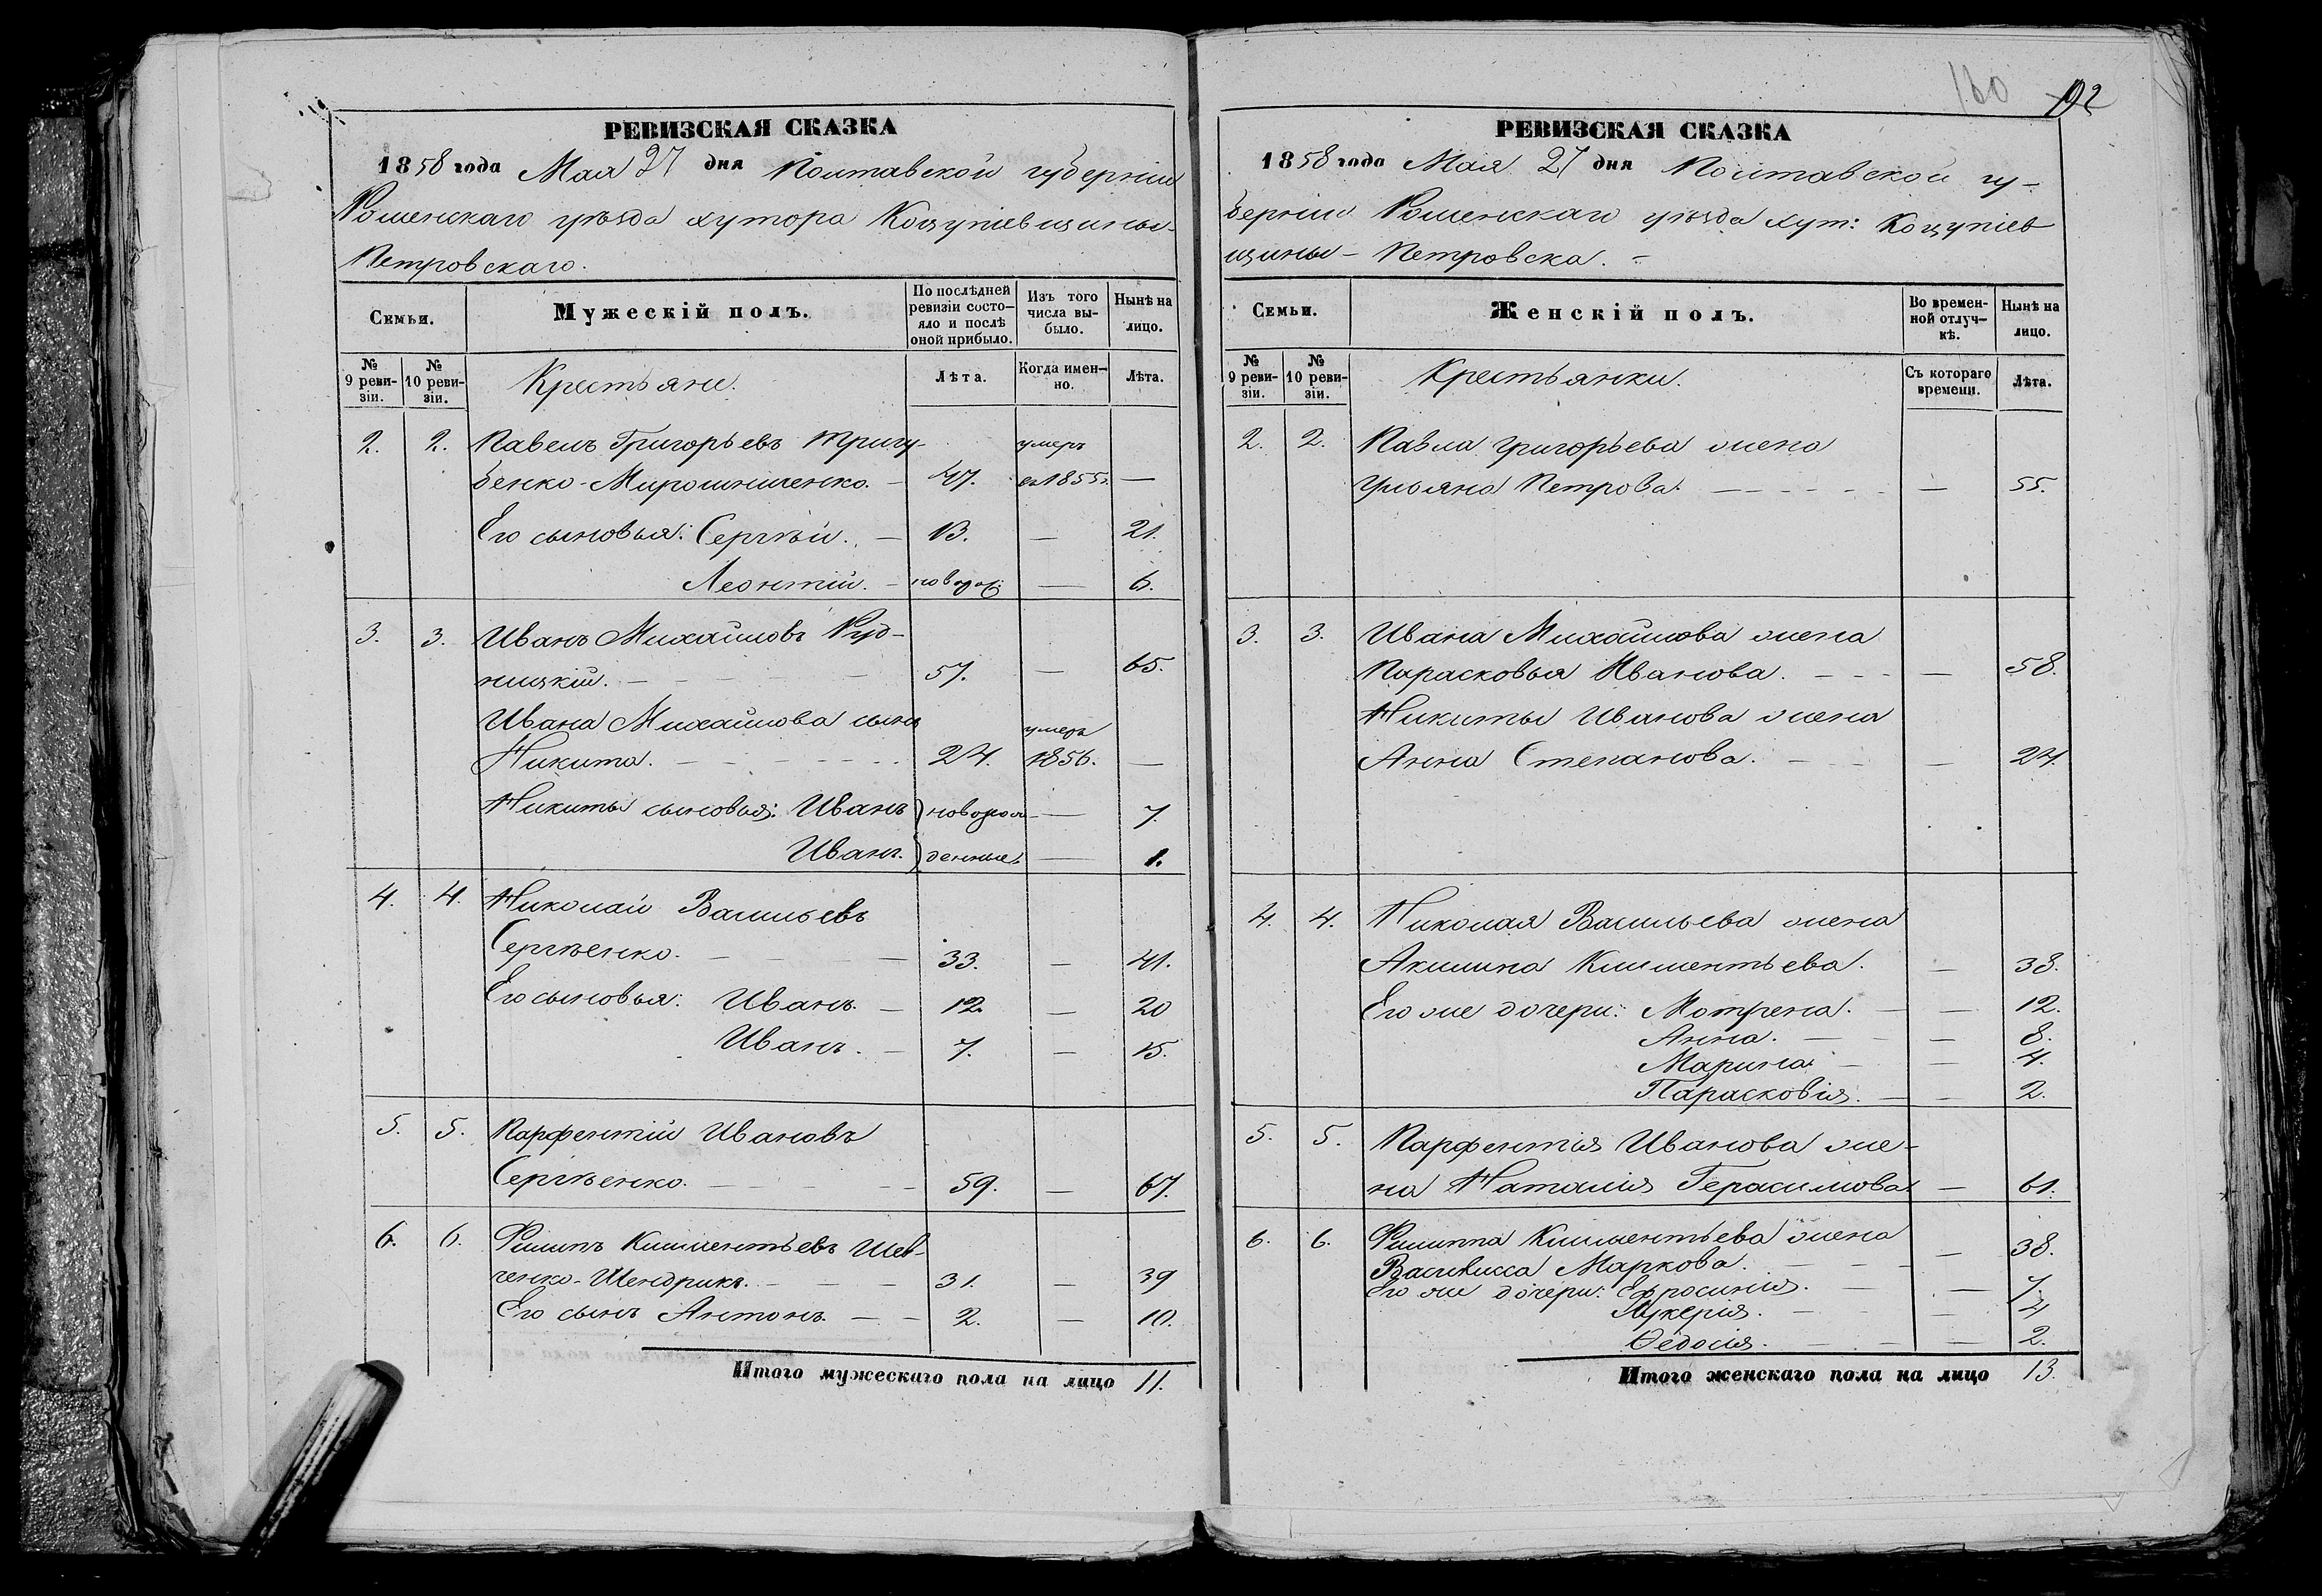 РЕВИЗСКАЯ СКАЗКА
1858 года Мая 27 дня Полтавской губерніи
Роменскаго уѣзда хутора Коцупіевщины-
Петровскаго.
Семьи.
Мужескій полъ.
По послѣдней ревизіи состо-
яло и послѣ оной прибыло.
Изъ того числа вы-
было.
Нынѣ на лицо.
№ 9 реви-
зіи.
№ 10 реви-
зіи.
Крестьяне.
Лѣта.
Когда имен-
но.
Лѣта.
2. 2. Павелъ Григорьевъ Тригу- умеръ
бенко-Мирошниченко. - 47. въ 1855г. —
Его сыновья: Сергѣй. — 13. — 21.
Леонтій. - новорож: — 6.
3. 3. Иванъ Михайловъ Руд-
ницкій. - 57. — 65.
Ивана Михайлова сынъ умеръ
Никита. - 24. 1856. —
Никиты сыновья: Иванъ новорож- — 7.
Иванъ. денные. — 1.
4. 4. Николай Васильевъ
Сергѣенко. - 33. — 41.
Его сыновья: Иванъ. - 12. — 20
Иванъ. - 7. — 15.
5. 5. Парфентій Ивановъ
Сергѣенко. - 59. — 67.
6. 6. Филипъ Климентьевъ Шев-
ченко-Шендрикъ. - 31. — 39
Его сынъ Антонъ. - 2. — 10.
Итого мужескаго пола на лицо 11.
160 192
РЕВИЗСКАЯ СКАЗКА
1858 года Мая 27 дня Полтавской гу-
берніи Роменскаго уѣзда хут: Коцупіев
щины - Петровска. -
Семьи.
Женскій полъ.
Во времен-
ной отлуч-
кѣ.
Нынѣ на лицо.
№ 9 реви-
зіи.
№ 10 реви-
зіи.
Крестьянки.
Съ котораго времени.
Лѣта.
2. 2. Павла Григорьева жена
Ульяна Петрова. - — 55.
3. 3. Ивана Михайлова жена
Парасковья Иванова. - — 58.
Никиты Иванова жена
Анна Степанова. - — 24.
4. 4. Николая Васильева жена
Акилина Климентьева. — 38.
Его же дочери: Мотрена. - — 12.
Анна. - — 8.
Марина. - — 4.
Парасковія. - — 2.
5. 5. Парфентія Иванова же-
на Наталія Герасимова. — 61.
6. 6. Филиппа Климентьева жена
Василисса Маркова. - — 38.
Его же дочери: Ефросинія. - — 7.
Лукерія. - — 4
Ѳедосія. - — 2.
Итого женскаго пола на лицо 13.